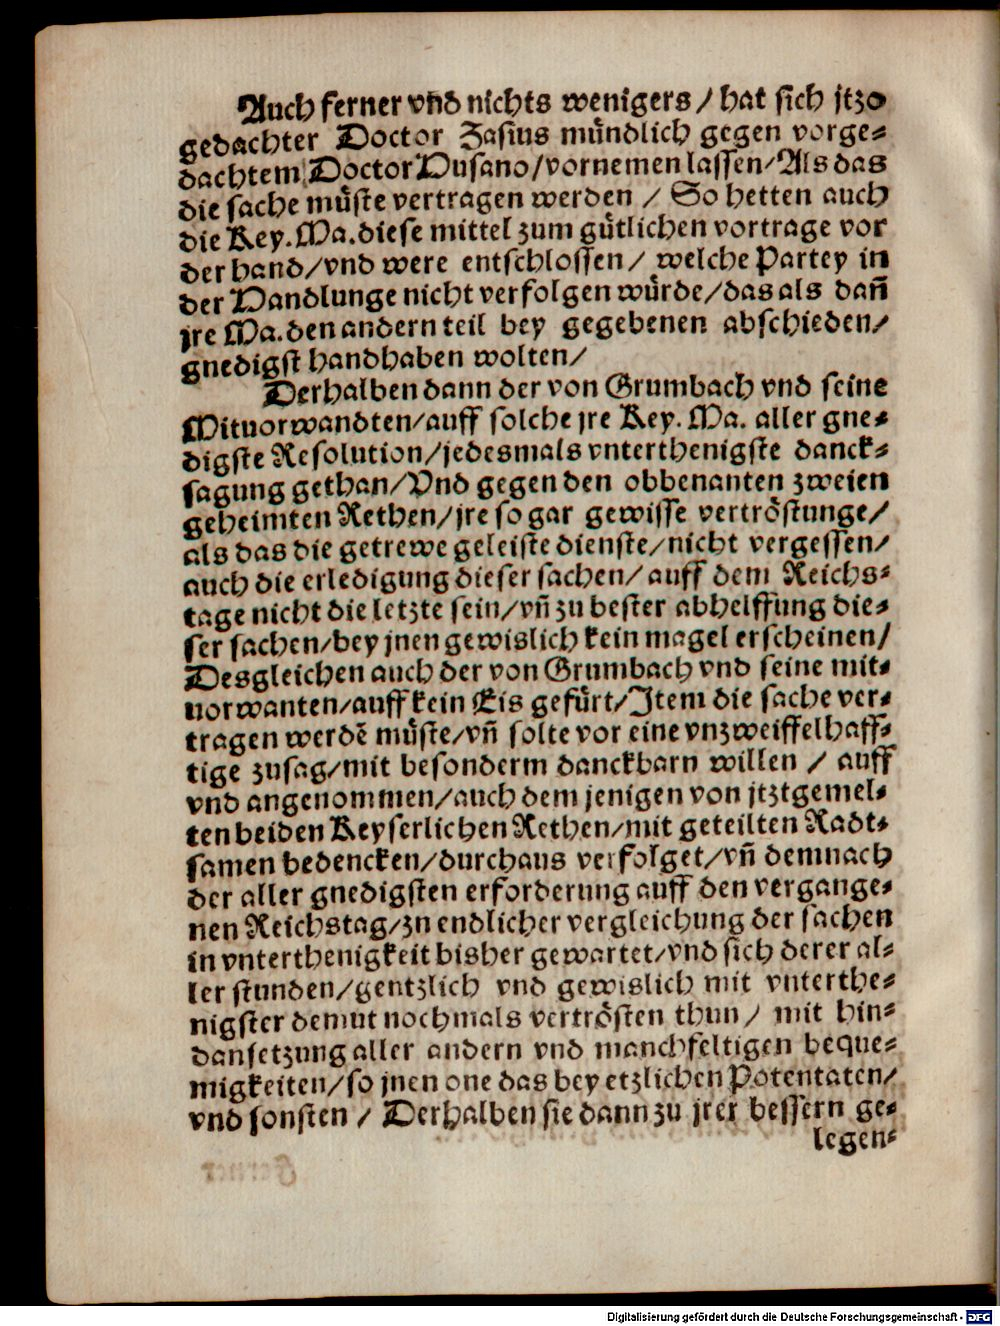 Auch ferner vnd nichts wenigers / hat sich jtzo
gedachter Doctor Zasius mündlich gegen vorge-
dachtem Doctor Husano / vornemen lassen / Als das
die sache müste vertragen werden / So hetten auch
die Key. Ma. diese mittel zum gütlichen vortrage vor
der hand / vnd were entschlossen / welche Partey in
der Handlunge nicht verfolgen würde / das als dañ
jre Ma. den andern teil bey gegebenen abschieden /
gnedigst handhaben wolten /
Derhalben dann der von Grumbach vnd seine
Mituorwandten / auff solche jre Key. Ma. aller gne-
digste Resolution / jedesmals vnterthenigste danck-
sagung gethan / Vnd gegen den obbenanten zweien
geheimten Rethen / jre so gar gewisse vertröstunge /
als das die getrewe geleiste dienste / nicht vergessen /
auch die erledigung dieser sachen / auff dem Reichs-
tage nicht die letzte sein / vñ zu bester abhelffung die-
ser sachen / bey jnen gewislich kein magel erscheinen /
Desgleichen auch der von Grumbach vnd seine mit-
uorwanten / auff kein Eis gefürt / Item die sache ver-
tragen werdẽ müste / vñ solte vor eine vnzweiffelhaff-
tige zusag / mit besonderm danckbarn willen / auff
vnd angenommen / auch dem jenigen von jtztgemel-
ten beiden Keyserlichen Rethen / mit geteilten Radt-
samen bedencken / durchaus verfolget / vñ demnach
der aller gnedigsten erforderung auff den vergange-
nen Reichstag / zn endlicher vergleichung der sachen
in vnterthenigkeit bisher gewartet / vnd sich derer al-
ler stunden / gentzlich vnd gewislich mit vnterthe-
nigster demut nochmals vertrösten thun / mit hin-
dansetzung aller andern vnd manchfeltigen beque-
migkeiten / so jnen one das bey etzlichen Potentaten /
vnd sonsten / Derhalben sie dann zu jrer bessern ge-
legen-
Digitalisierung gefördert durch die Deutsche Forschungsgemeinschaft - DFG